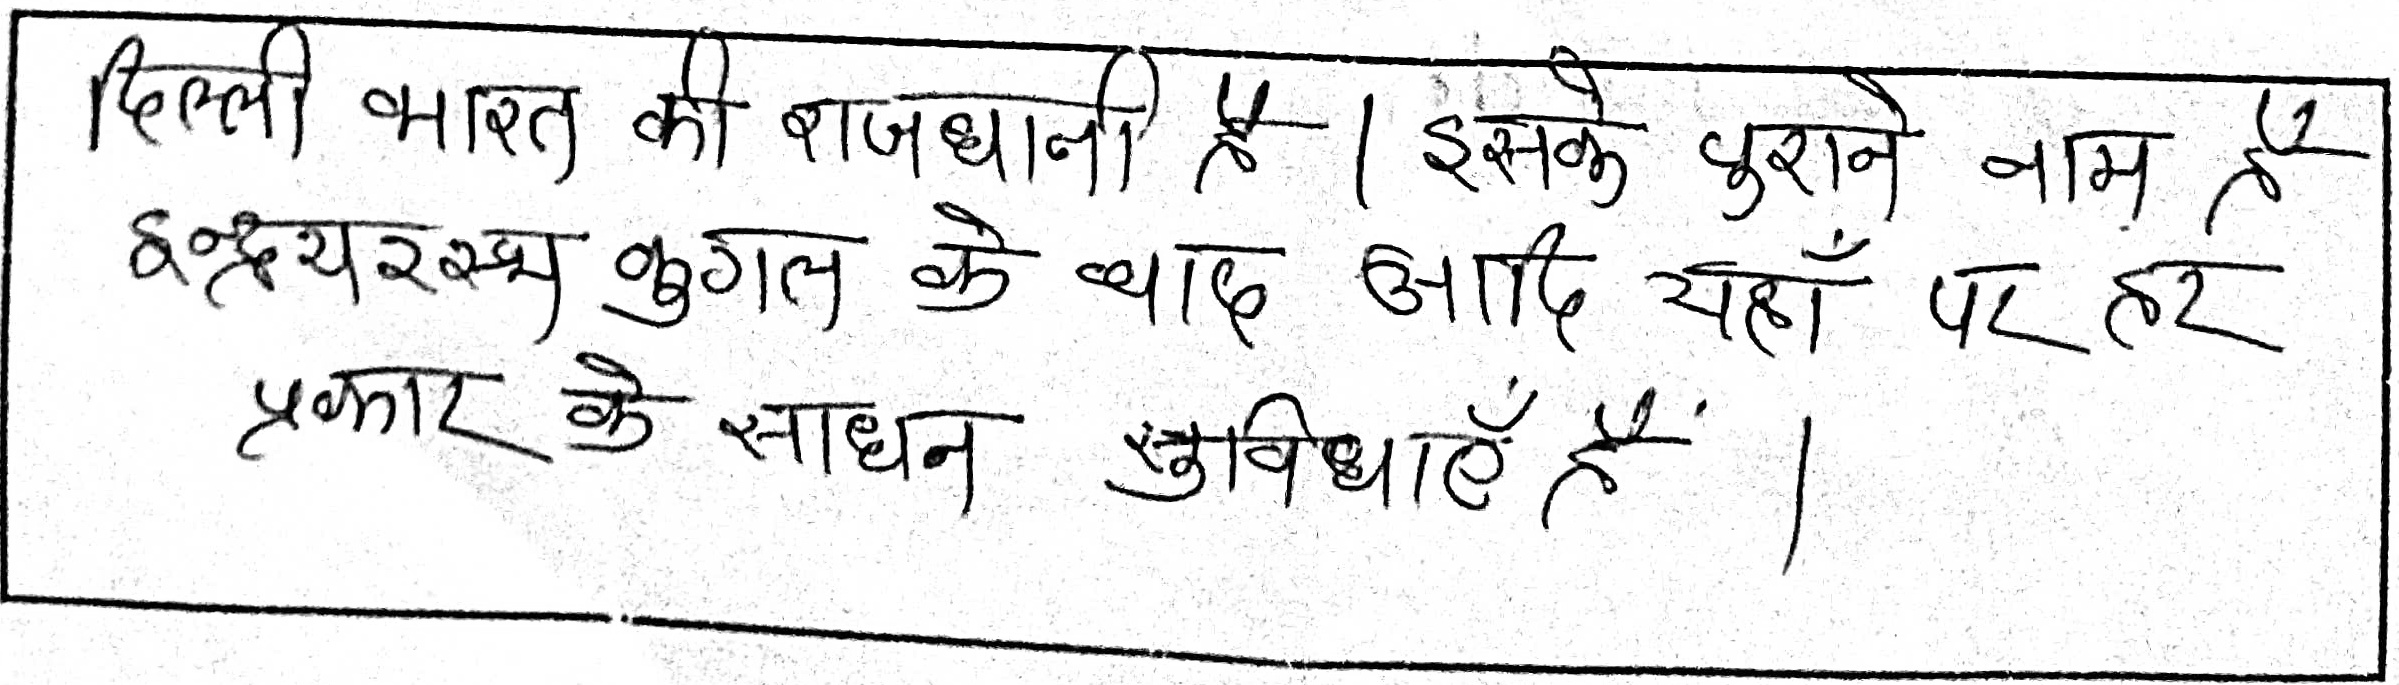 दिल्ली भारत की राजधानी है । इसके पुराने नाम है
के बाद आदि यहाँ पर हर
प्रकार के साधन सुविधाएँ हैं ।